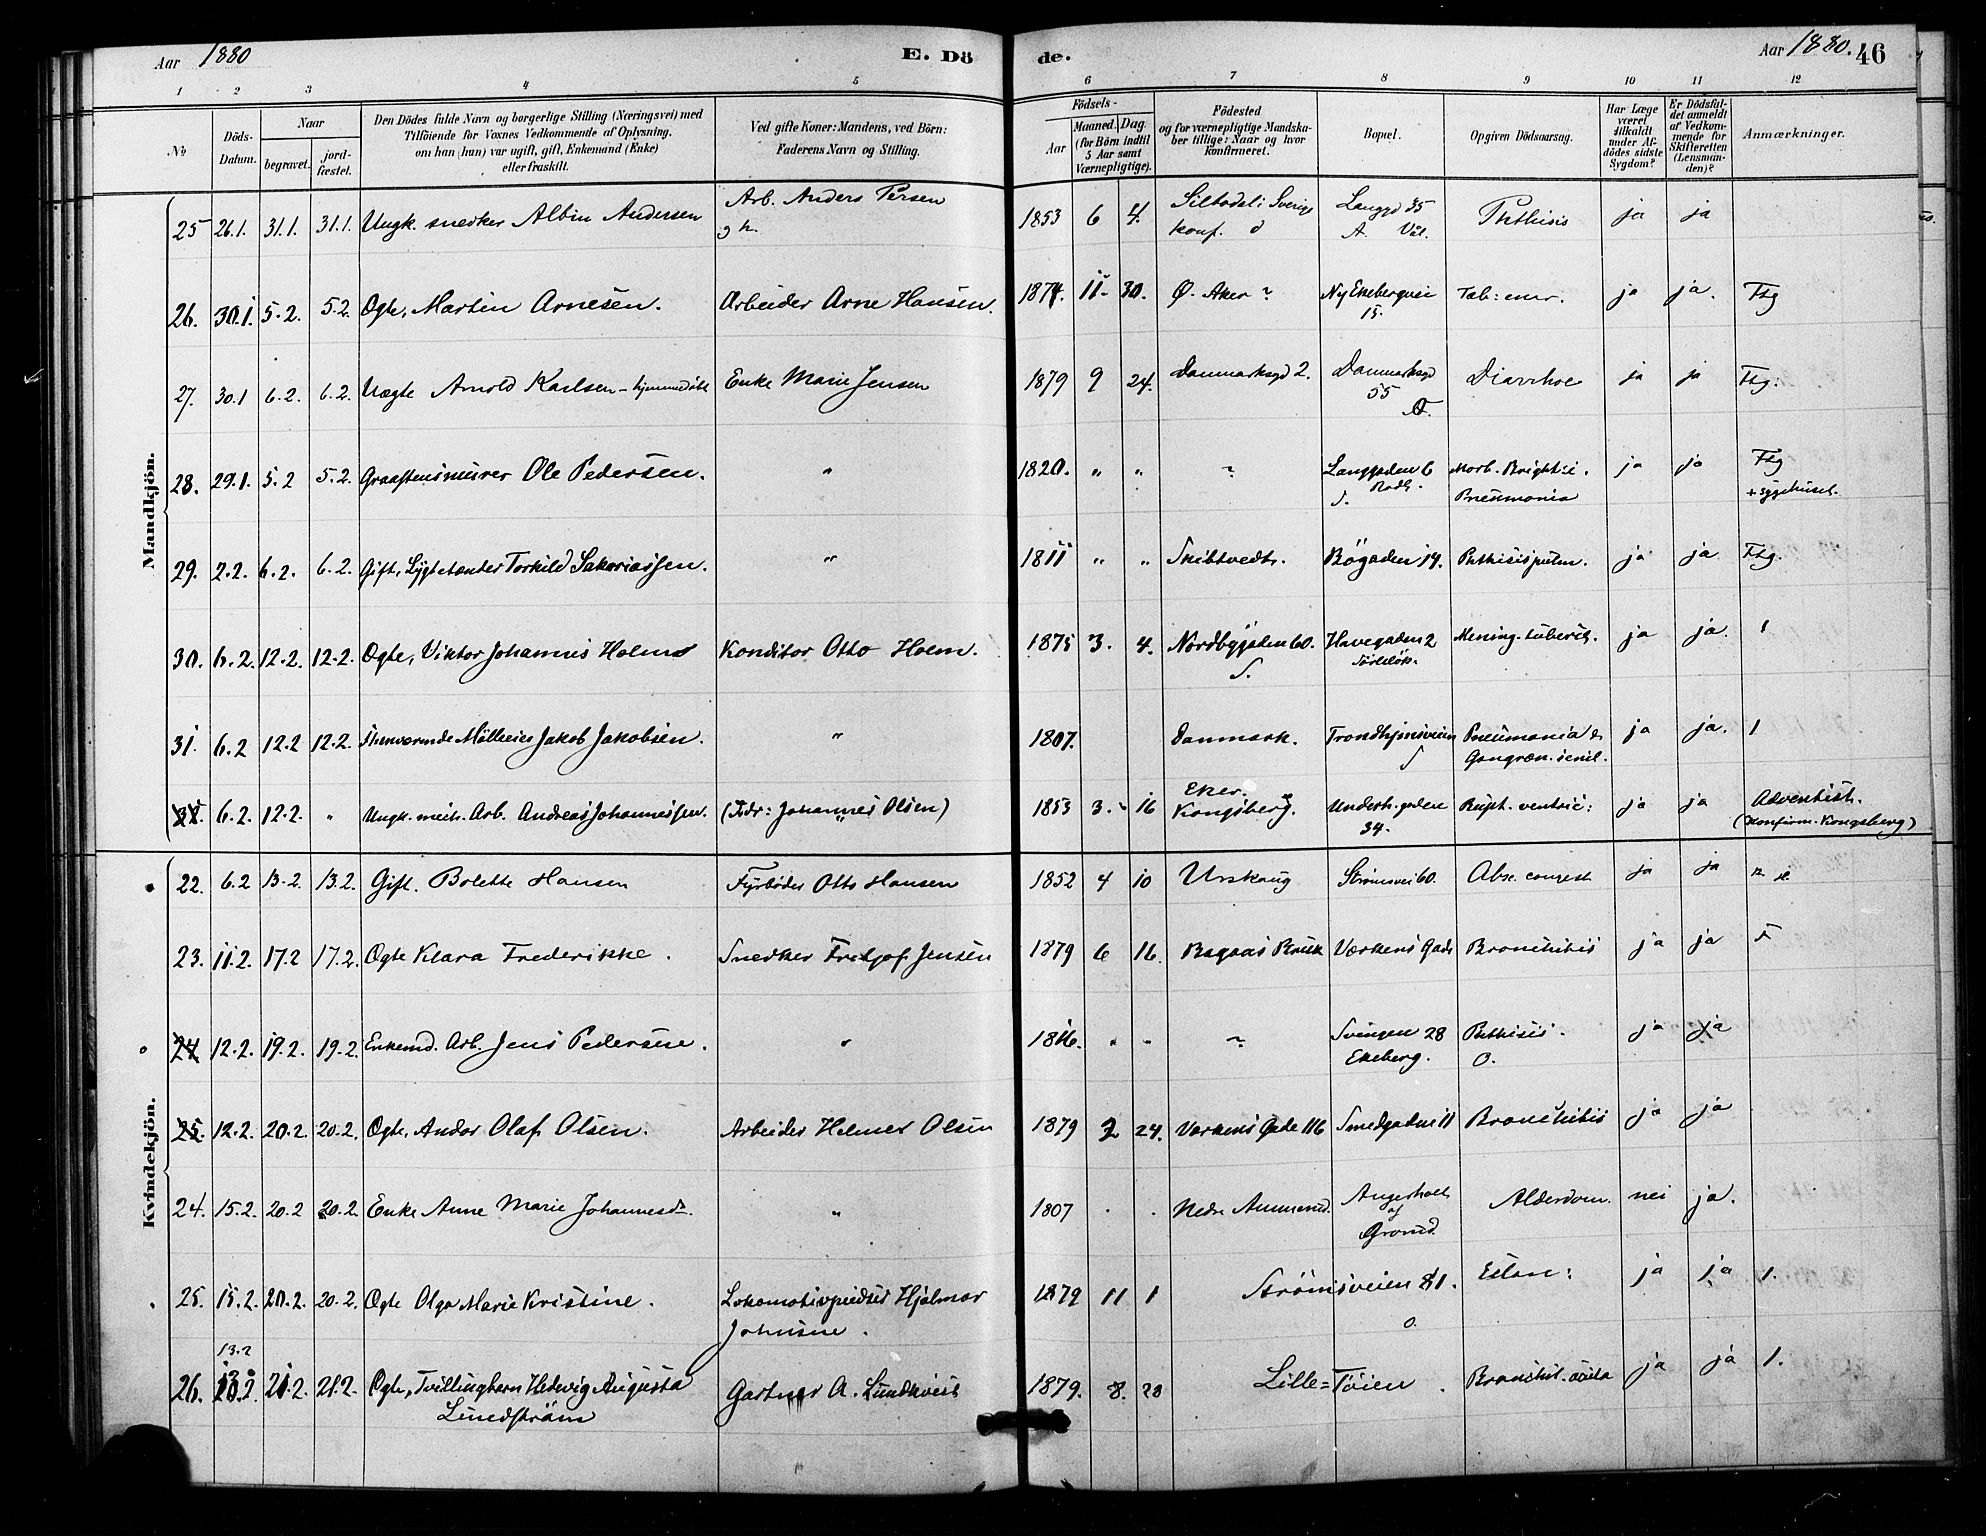 Aar 1880
E. Dö
de.
Aar 1880. 46
1 2 3 4 5 6 7 8 9 10 11 12
No
Döds-Datum.
Naar
begravet.
jord-fæstet.
Den Dödes fulde Navn og borgerlige Stilling (Næringsvei) med
Tilföiende for Voxnes Vedkommende af Oplysning.
om han (hun) var ugift, gift, Enkemand (Enke)
eller fraskilt.
Ved gifte Koner: Mandens, ved Börn:
Faderens Navn og Stilling.
Födsels-
Aar
Maaned. Dag.
(for Börn indtil
5 Aar samt
Værnepligtige).
Födested
og for værnepligtige Mandska-
ber tillige: Naar og hvor
konfirmeret.
Bopæl.
Opgiven Dödsaarsag.
Har Læge
været
tilkaldt
under Af-
dödes sidste
Sygdom?
Er Dödsfal-
det anmeldt
af Vedkom-
mende for
Skifteretten
(Lensman-
den)?
Anmærkninger.
Mandkjön.
25 26.1. 31.1. 31.1. Ungk. snedker Albin Andersen Arb. Anders Persen 1853 6 4. Sverige Langgd 35 Phthisis ja ja
konf. A. Vål.
26. 30.1. 5.2. 5.2. Ogte, Martin Arnesen. Arbeider Arne Hansen. 1874. 11. 30. Ø. Aker ? Ny Ekebergvei ja ja. Ftg
15.
27. 30.1 6.2. 6.2. Uægte Arnold Karlsen - hjemmedöbt Enke Marie Jensen 1879 9 24. Danmarksgd 2. Danmarksgd Diarrhoe ja ja Ftg.
55 O.
28. 29.1. 5.2 5.2. Graastensmurer Ole Pedersen. " 1820. " " ? Langgaden 6 Morb. Brightii. ja ja Ftg
Pneumonia + sygehuset.
29. 2.2. 6.2. 6.2. Gift, Lygtetænder Torkild Sakariassen. " 1811 " " Skibtvedt. Bögaden 14. Phthisis pulm. ja ja Ftg.
30. 6.2. 12.2. 12.2. Ogte, Viktor Johannes Holm Konditor Otto Holm. 1875 3. 4. Nordbygaden 60. Havegaden 2 Mening. tubercl. ja ja. 1
S.
31. 6.2 12.2 12.2. Mölleeier Jakob Jakobsen. " 1807. Danmark. Trondhjemsveien Pneumonia & ja ja. 1
S Gangræn. senil.
32. 6.2. 12.2. " Ungk. mech. Arb. Andreas Johannessen. (Fdr: Johannes Olsen) 1853 3. 16 Eker. Kongsberg. Underh. gaden Rupt. ventric: ja ja Adventist.
34. (Konfirm. Kongsberg)
Kvindekjön.
22. 6.2 13.2. 13.2. Gift. Bolette Hansen Fyrböder Otto Hansen 1852 4 10 Urskoug Strömsvei 60. Absc. congest ja ja
23. 11.2. 17.2 17.2. Ogte Klara Frederikke. Snedker Fredjof Jensen 1879 6 16. Bagaas Bruk Værkens Gade Bronchitis ja ja
24 12.2. 19.2. 19.2. Enkemd. Arb. Jens Pedersen. " 1816. " " ? Svingen 28 Phthisis. ja ja
Ekeberg. O.
25. 12.2. 20.2. 20.2. Ogte, Andor Olaf Olsen. Arbeider Helmer Olsen 1879 2 24. Værkens Gade 116 Smedgaden 11 Bronchitis ja ja
24. 15.2. 20.2 20.2. Enke Anne Marie Johannesd. " 1807 . . Nedre Ammerud. Alderdom. nei ja.
af
25. 15.2. 20.2. 20.2. Ogte Olga Marie Kristine. Lokomotivpudser Hjalmar 1879 11 1 Strömsveien 81. ja ja 1.
Johnsen. O.
13.2
26. 21.2. 21.2. Ogte, Tvillingbarn Hedevig Augusta Gartner A. Lundkvist 1879. 8. 28 Lille=Töien. Bronchit. acuta ja ja 1.
Lundström